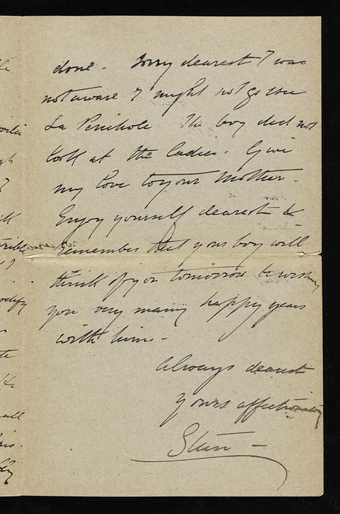 done - Sorry dearest I was
not aware I might not go see
La The boy did not
look at the ladies. Give
my love to your Mother -
Enjoy yourself dearest &
remember that your boy will
think of you tomorrow & wishing
you very many happy years
with him -
Always dearest
yours affectionately